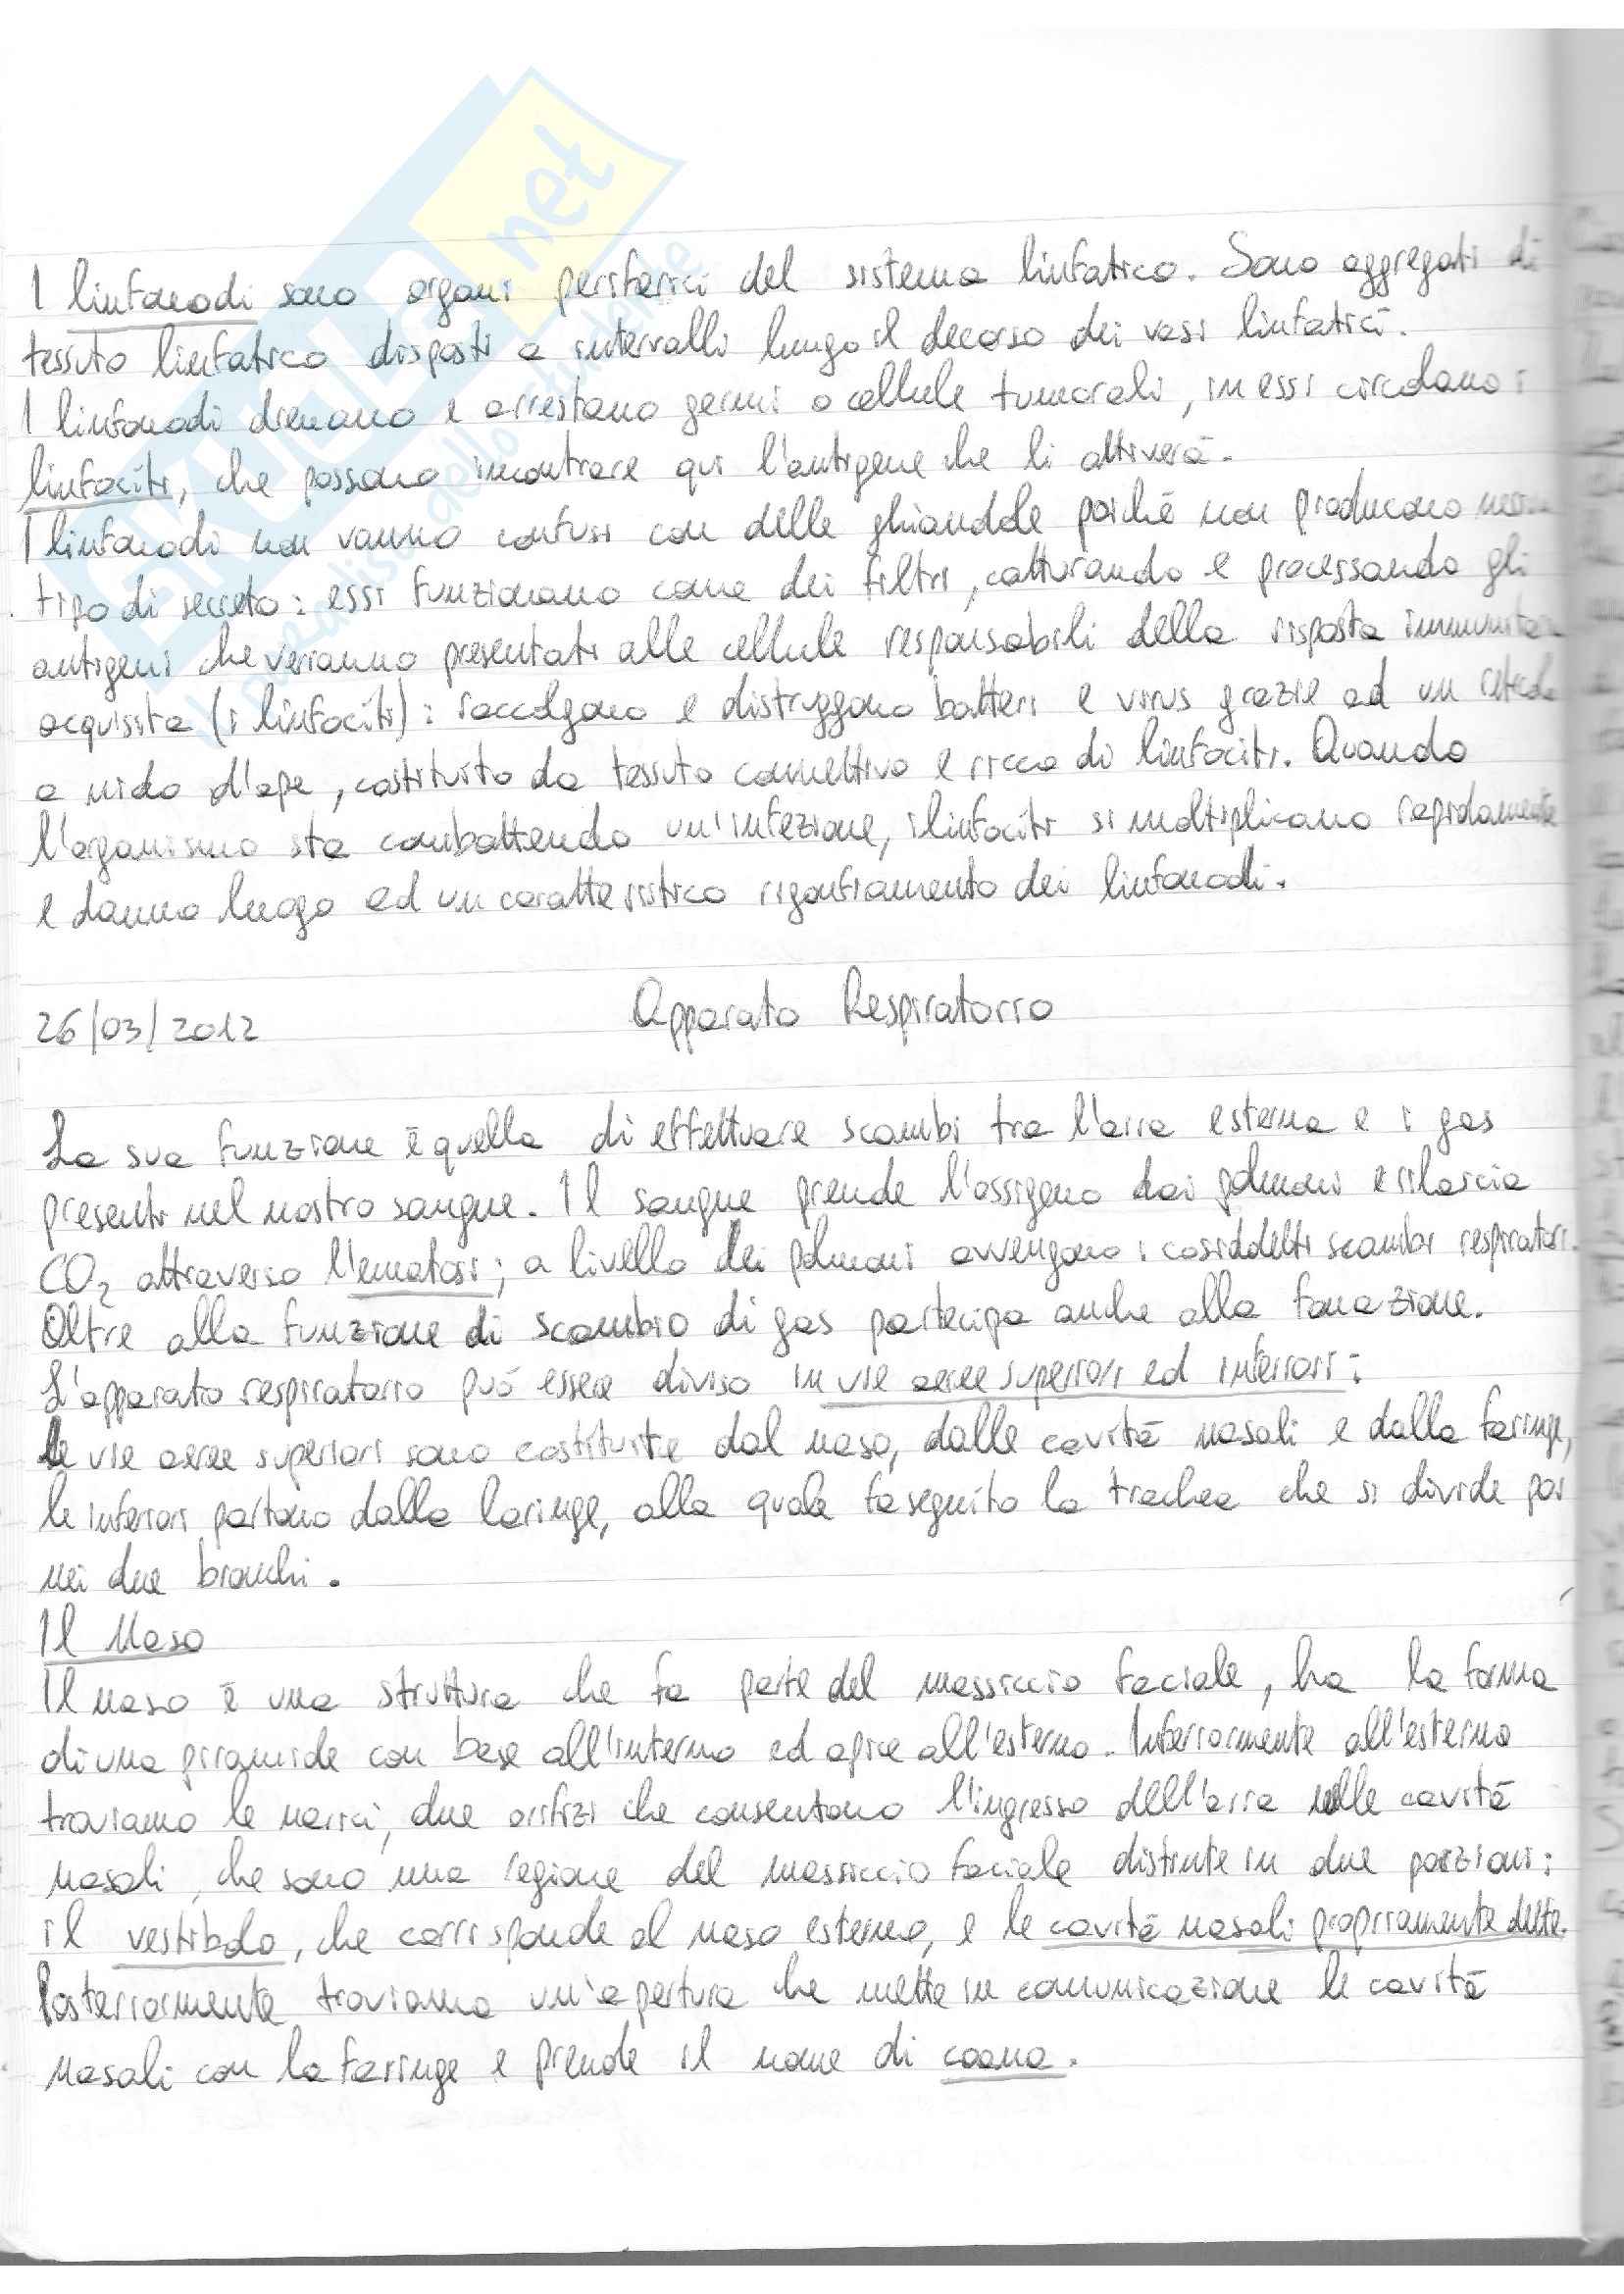 I linfonodi sono organi periferici del sistema linfatico. Sono aggregati di
tessuto linfatico disposti a intervalli lungo il decorso dei vasi linfatici.
I linfonodi drenano e arrestano germi o cellule tumorali, in essi circolano i
linfociti, che possono incontrare qui l'antigene che li attiverà.
I linfonodi non vanno confusi con delle ghiandole poiché non producono
tipo di secreto: essi funzionano come dei filtri, catturando e processando gli
antigeni che veranno presentati alle cellule responsabili della risposta
acquisita (i linfociti): raccolgono e distruggono batteri e virus grazie ad un
a nido d'ape, costituito da tessuto connettivo e ricco di linfociti. Quando
l'organismo sta combattendo un'infezione, i linfociti si moltiplicano rapidamente
e danno luogo ad un caratteristico rigonfiamento dei linfonodi.
26/03/2012 Apparato Respiratorio
La sua funzione è quella di effettuare scambi tra l'aria esterna e i gas
presenti nel nostro sangue. Il sangue prende l'ossigeno dai polmoni e rilascia
CO₂ attraverso l'ematosi; a livello dei polmoni avvengono i cosiddetti scambi respiratori.
Oltre alla funzione di scambio di gas partecipa anche alla fonazione.
L'apparato respiratorio può essere diviso in vie aeree superiori ed inferiori:
le vie aeree superiori sono costituite dal naso, dalle cavità nasali e dalla faringe,
le inferiori partono dalla laringe, alla quale fa seguito la trachea che si divide poi
nei due bronchi.
Il Naso
Il naso è una struttura che fa parte del massiccio facciale, ha la forma
di una piramide con base all'interno ed apice all'esterno. Inferiormente all'esterno
troviamo le narici, due orifizi che consentono l'ingresso dell'aria nelle cavità
nasali, che sono una regione del massiccio facciale distinte in due porzioni:
il vestibolo, che corrisponde al naso esterno, e le cavità nasali propriamente dette.
Posteriormente troviamo un'apertura che mette in comunicazione le cavità
nasali con la faringe e prende il nome di coana.
SKUOLA.net
il paradiso dello studente